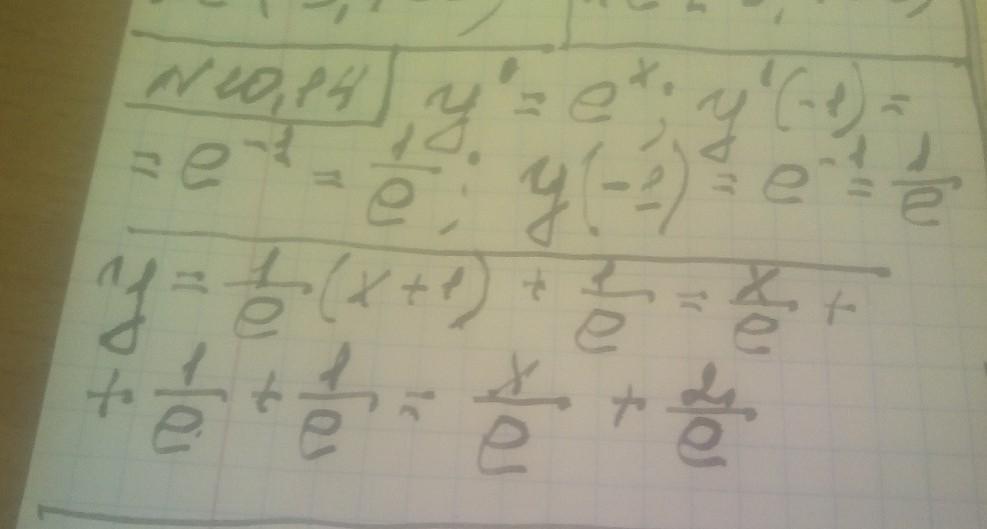 N 10,14 y' = e^x; y'(-1) =
= e^-1 = 1/e; y(-1) = e^-1 = 1/e
y = 1/e (x + 1) + 1/e = x/e +
+ 1/e + 1/e = x/e + 2/e